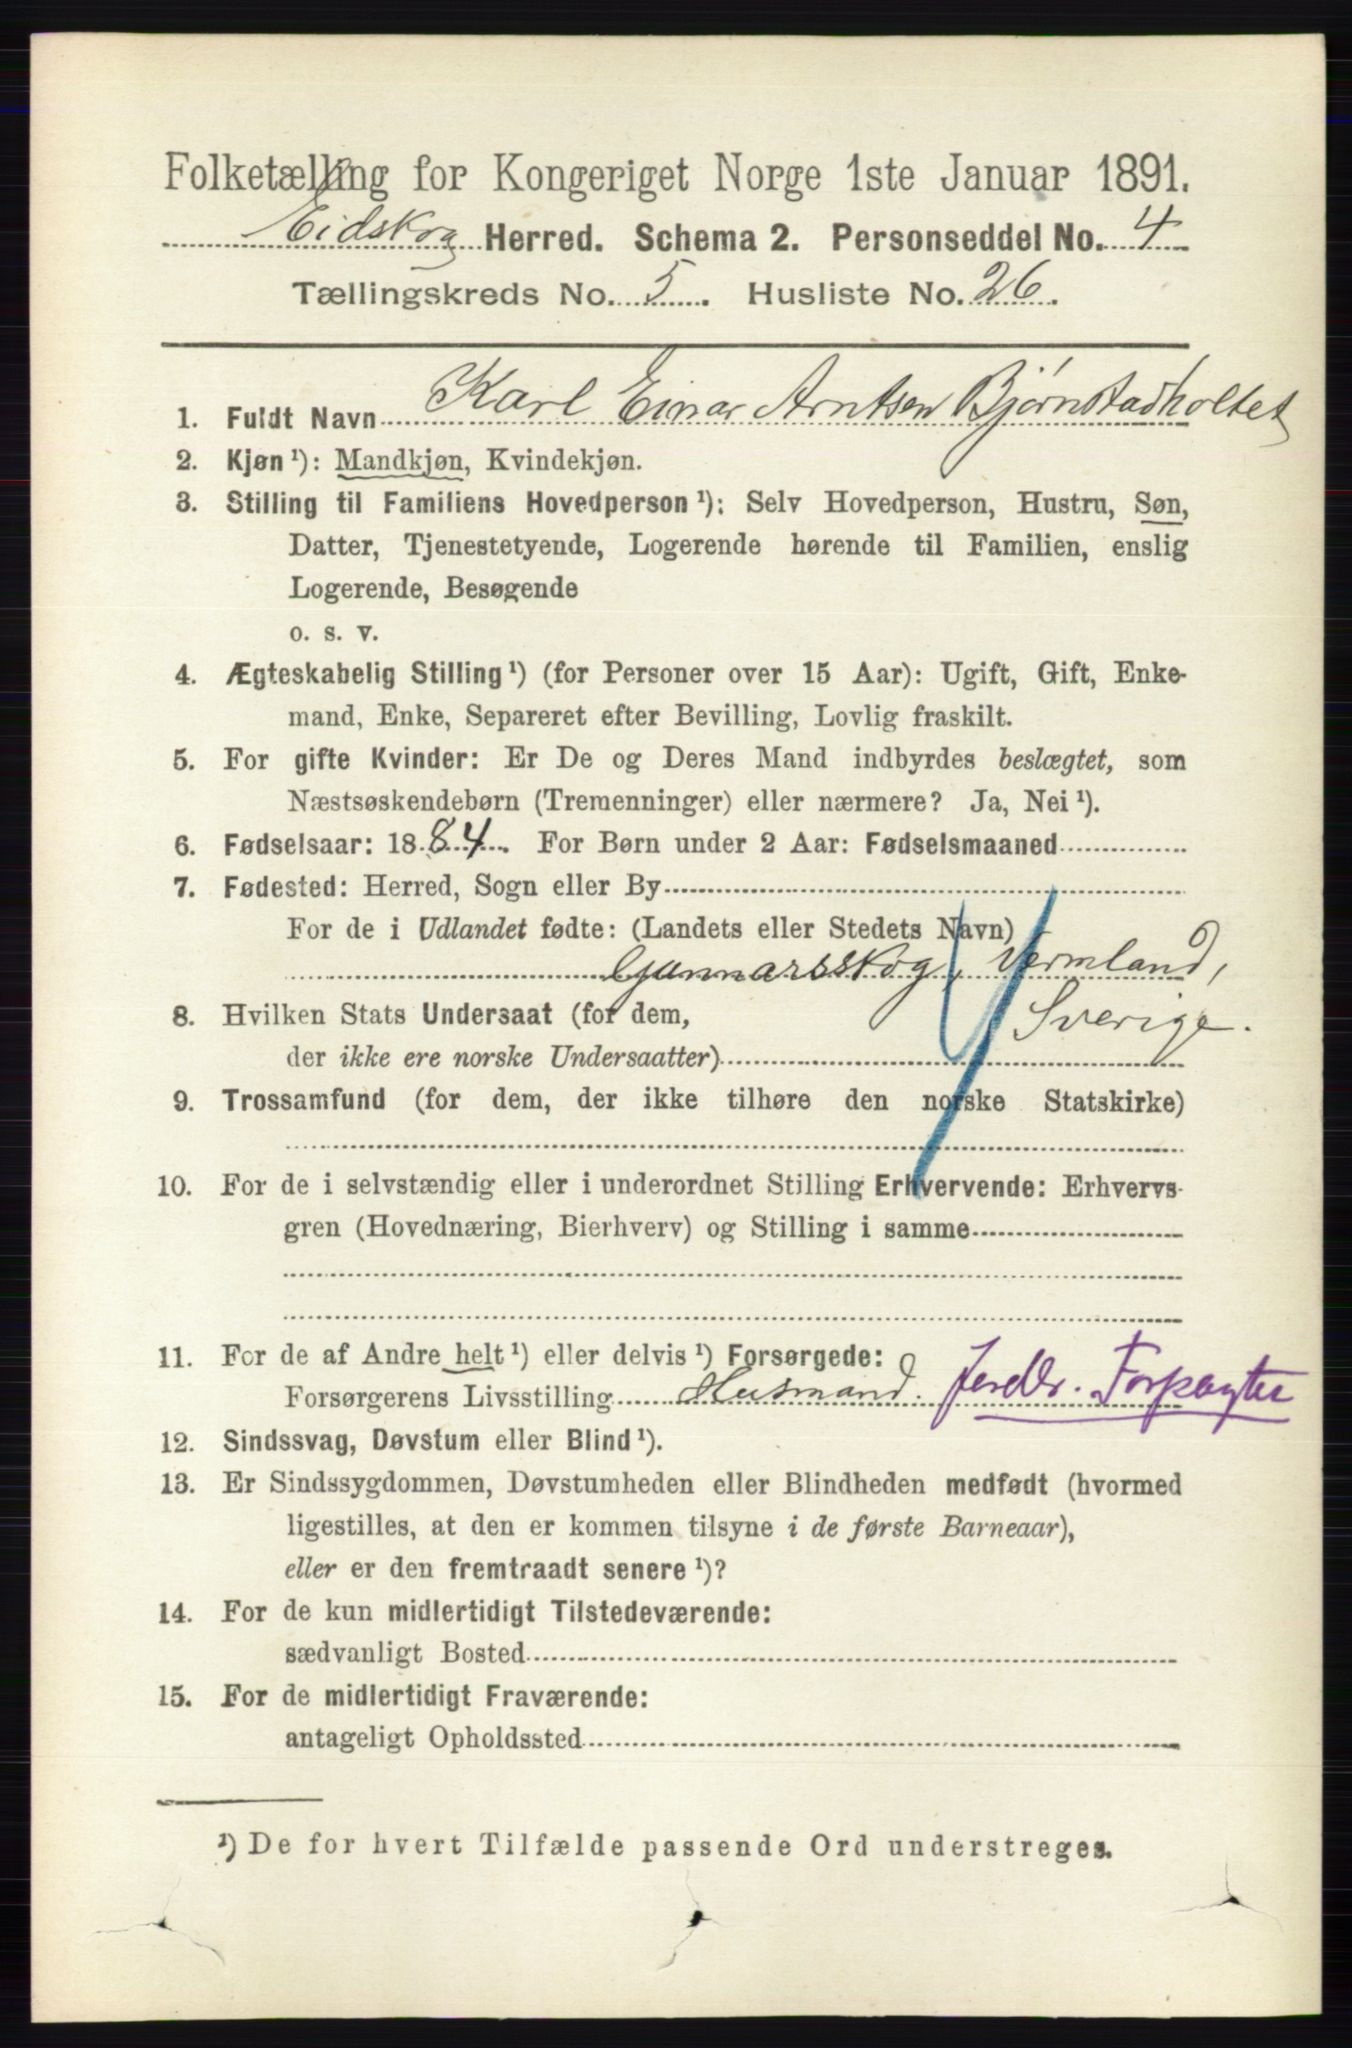 Folketælling for Kongeriget Norge 1ste Januar 1891.
Eidskog Herred. Schema 2. Personseddel No. 4
Tællingskreds No. 5. Husliste No. 26.
1. Fuldt Navn Karl Einar Arntsen Bjørnstadholtet
2. Kjøn ¹): Mandkjøn, Kvindekjøn.
3. Stilling til Familiens Hovedperson ¹): Selv Hovedperson, Hustru, Søn,
Datter, Tjenestetyende, Logerende hørende til Familien, enslig
Logerende, Besøgende
o. s. v.
4. Ægteskabelig Stilling ¹) (for Personer over 15 Aar): Ugift, Gift, Enke-
mand, Enke, Separeret efter Bevilling, Lovlig fraskilt.
5. For gifte Kvinder: Er De og Deres Mand indbyrdes beslægtet, som
Næstsøskendebørn (Tremenninger) eller nærmere? Ja, Nei ¹).
6. Fødselsaar: 1884. For Børn under 2 Aar: Fødselsmaaned
7. Fødested: Herred, Sogn eller By
For de i Udlandet fødte: (Landets eller Stedets Navn)
Gunnarsskog, Vermland,
8. Hvilken Stats Undersaat (for dem, Sverige.
der ikke ere norske Undersaatter)
9. Trossamfund (for dem, der ikke tilhøre den norske Statskirke)
10. For de i selvstændig eller i underordnet Stilling Erhvervende: Erhvervs-
gren (Hovednæring, Bierhverv) og Stilling i samme
11. For de af Andre helt ¹) eller delvis ¹) Forsørgede:
Forsørgerens Livsstilling Husmand. Forpagter
12. Sindssvag, Døvstum eller Blind ¹).
13. Er Sindssygdommen, Døvstumheden eller Blindheden medfødt (hvormed
ligestilles, at den er kommen tilsyne i de første Barneaar),
eller er den fremtraadt senere ¹)?
14. For de kun midlertidigt Tilstedeværende:
sædvanligt Bosted
15. For de midlertidigt Fraværende:
antageligt Opholdssted
¹) De for hvert Tilfælde passende Ord understreges.